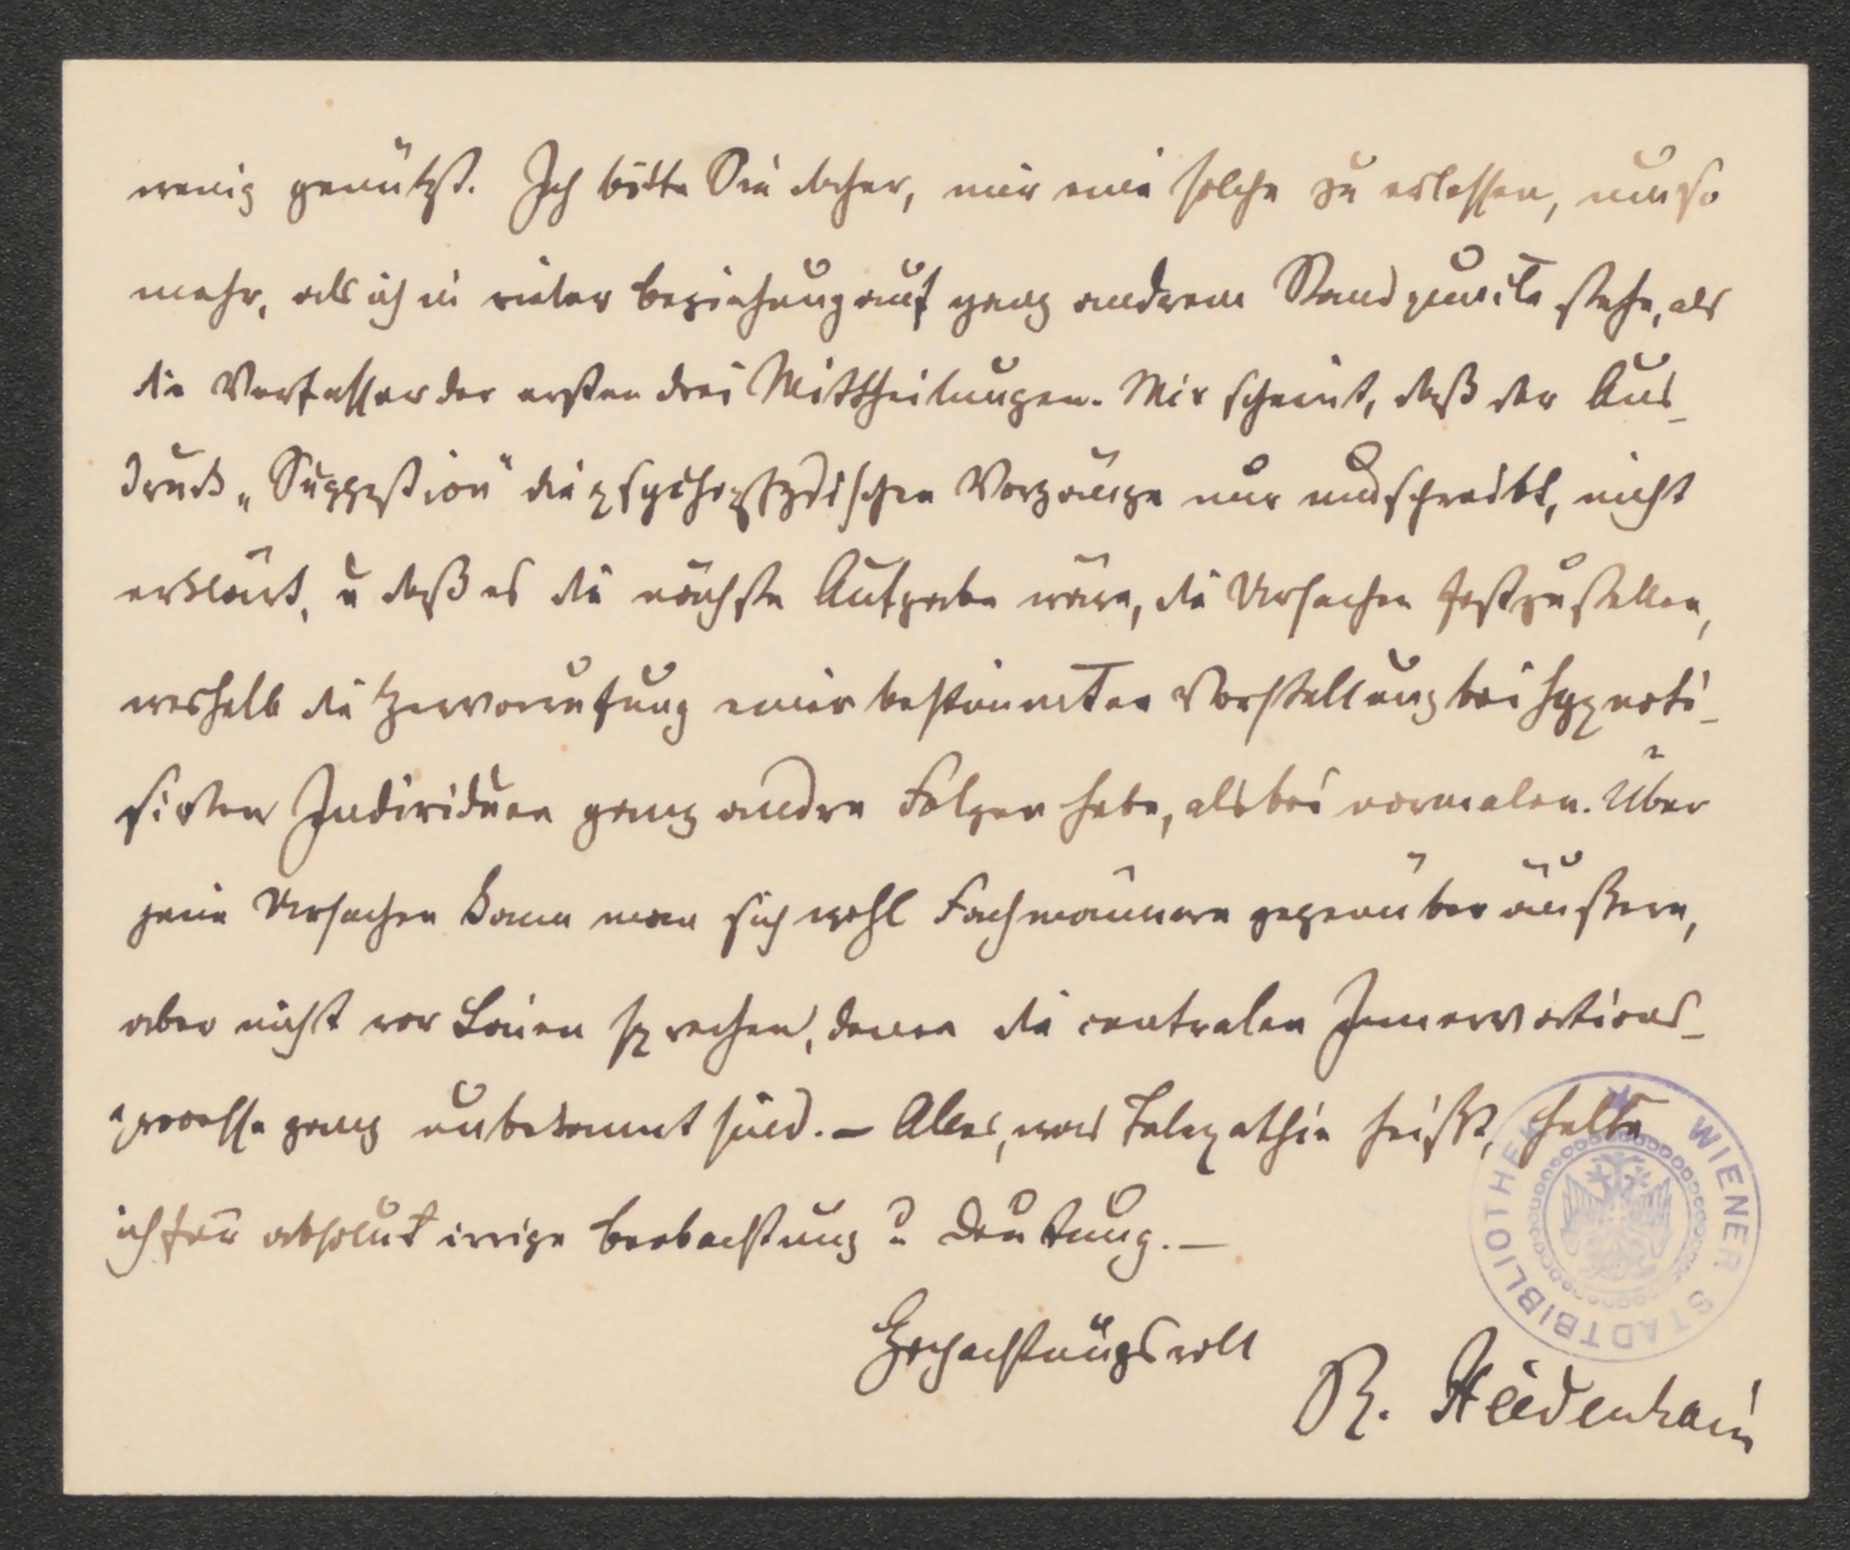 wenig genützt. Ich bitte Sie daher, mir eine solche zu erlassen, umso
mehr, als ich in vieler Beziehung auf ganz andrem Standpuncte stehe, als
die Verfasser der ersten drei Mittheilungen. Mir scheint, daß der Aus-
druck „Suggestion“ die psychophysischen Vorgänge nur umschreibt, nicht
erklärt, u daß es die nächste Aufgabe wäre, die Ursachen festzustellen,
weshalb die Hervorrufung einer bestimmten Vorstellung bei hypnoti-
sirten Individuen ganz andre Folgen habe, als bei normalen. Über
jene Ursachen kann man sich wohl Fachmännern gegenüber äußern,
aber nicht vor Laien sprechen, denen die centralen Innervations-
processe ganz unbekannt sind. – Alles, was Telepathie heißt, halte
ich für absolut irrige Beobachtung u Deutung. –
Hochachtungsvoll
R. Heidenhain
WIENER STADTBIBLIOTHEK